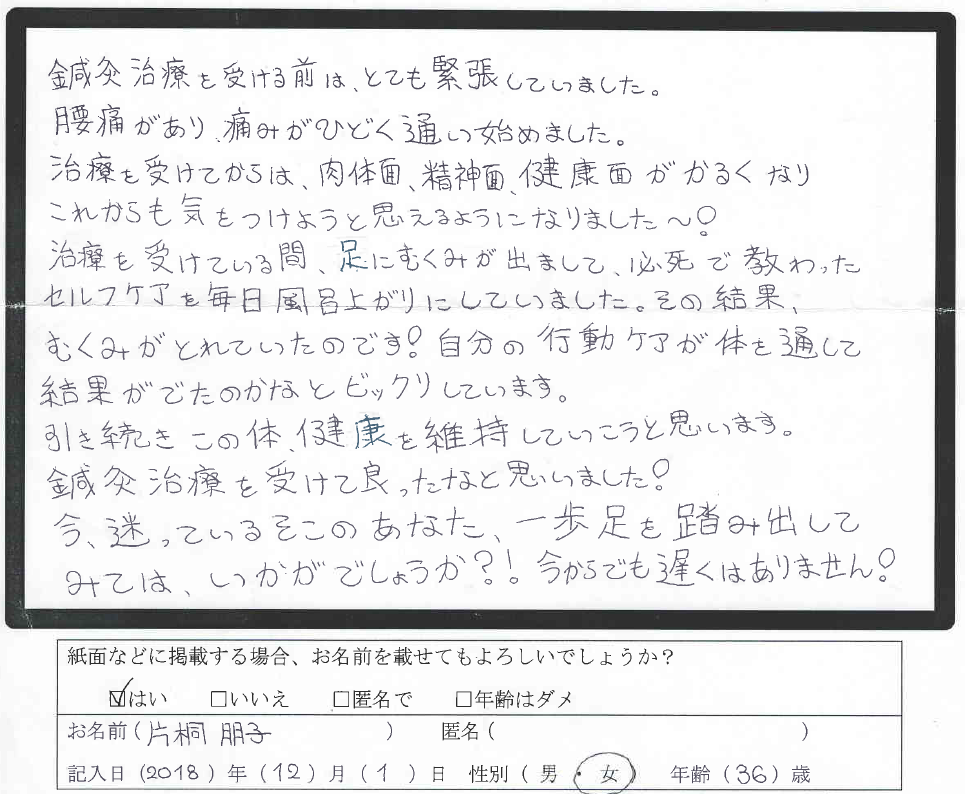 鍼灸治療を受ける前は、とても緊張していました。
腰痛があり、痛みがひどく通い始めました。
治療を受けてからは、肉体面、精神面、健康面がかるくなり
これからも気をつけようと思えるようになりました〜！
治療を受けている間、足にむくみが出まして、必死で教わった
セルフケアを毎日風呂上がりにしていました。その結果、
むくみがとれていったのです！自分の行動ケアが体を通して
結果がでたのかなとビックリしています。
引き続きこの体、健康を維持していこうと思います。
鍼灸治療を受けて良ったなと思いました！
今、迷っているそこのあなた、一歩足を踏み出して
みては、いかがでしょうか？！今からでも遅くはありません！
紙面などに掲載する場合、お名前を載せてもよろしいでしょうか？
☑はい □いいえ □匿名で □年齢はダメ
お名前（片桐 朋子 ） 匿名（ ）
記入日（2018）年（12）月（1）日 性別（男・女） 年齢（36）歳